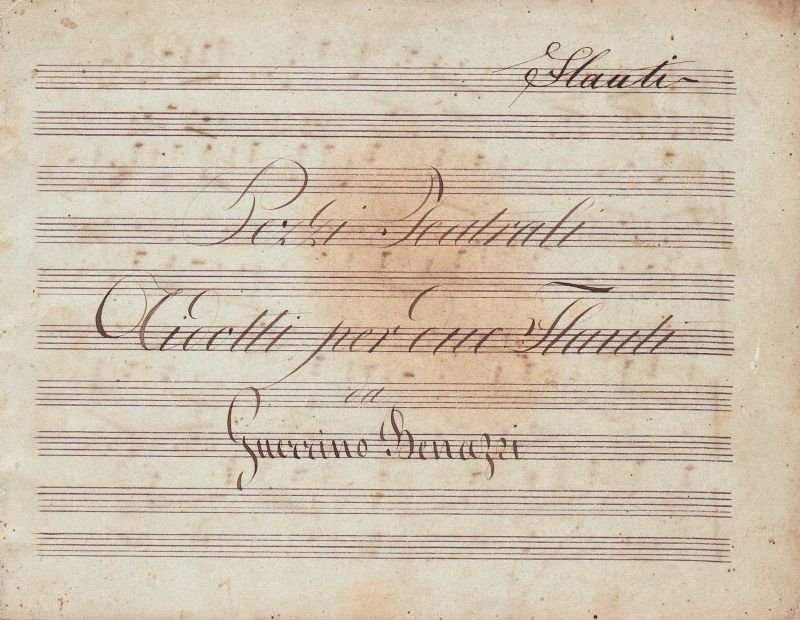 Flauti
Pezzi Teatrali
Ridotti per due Flauti
da
Guerrino Benazzi